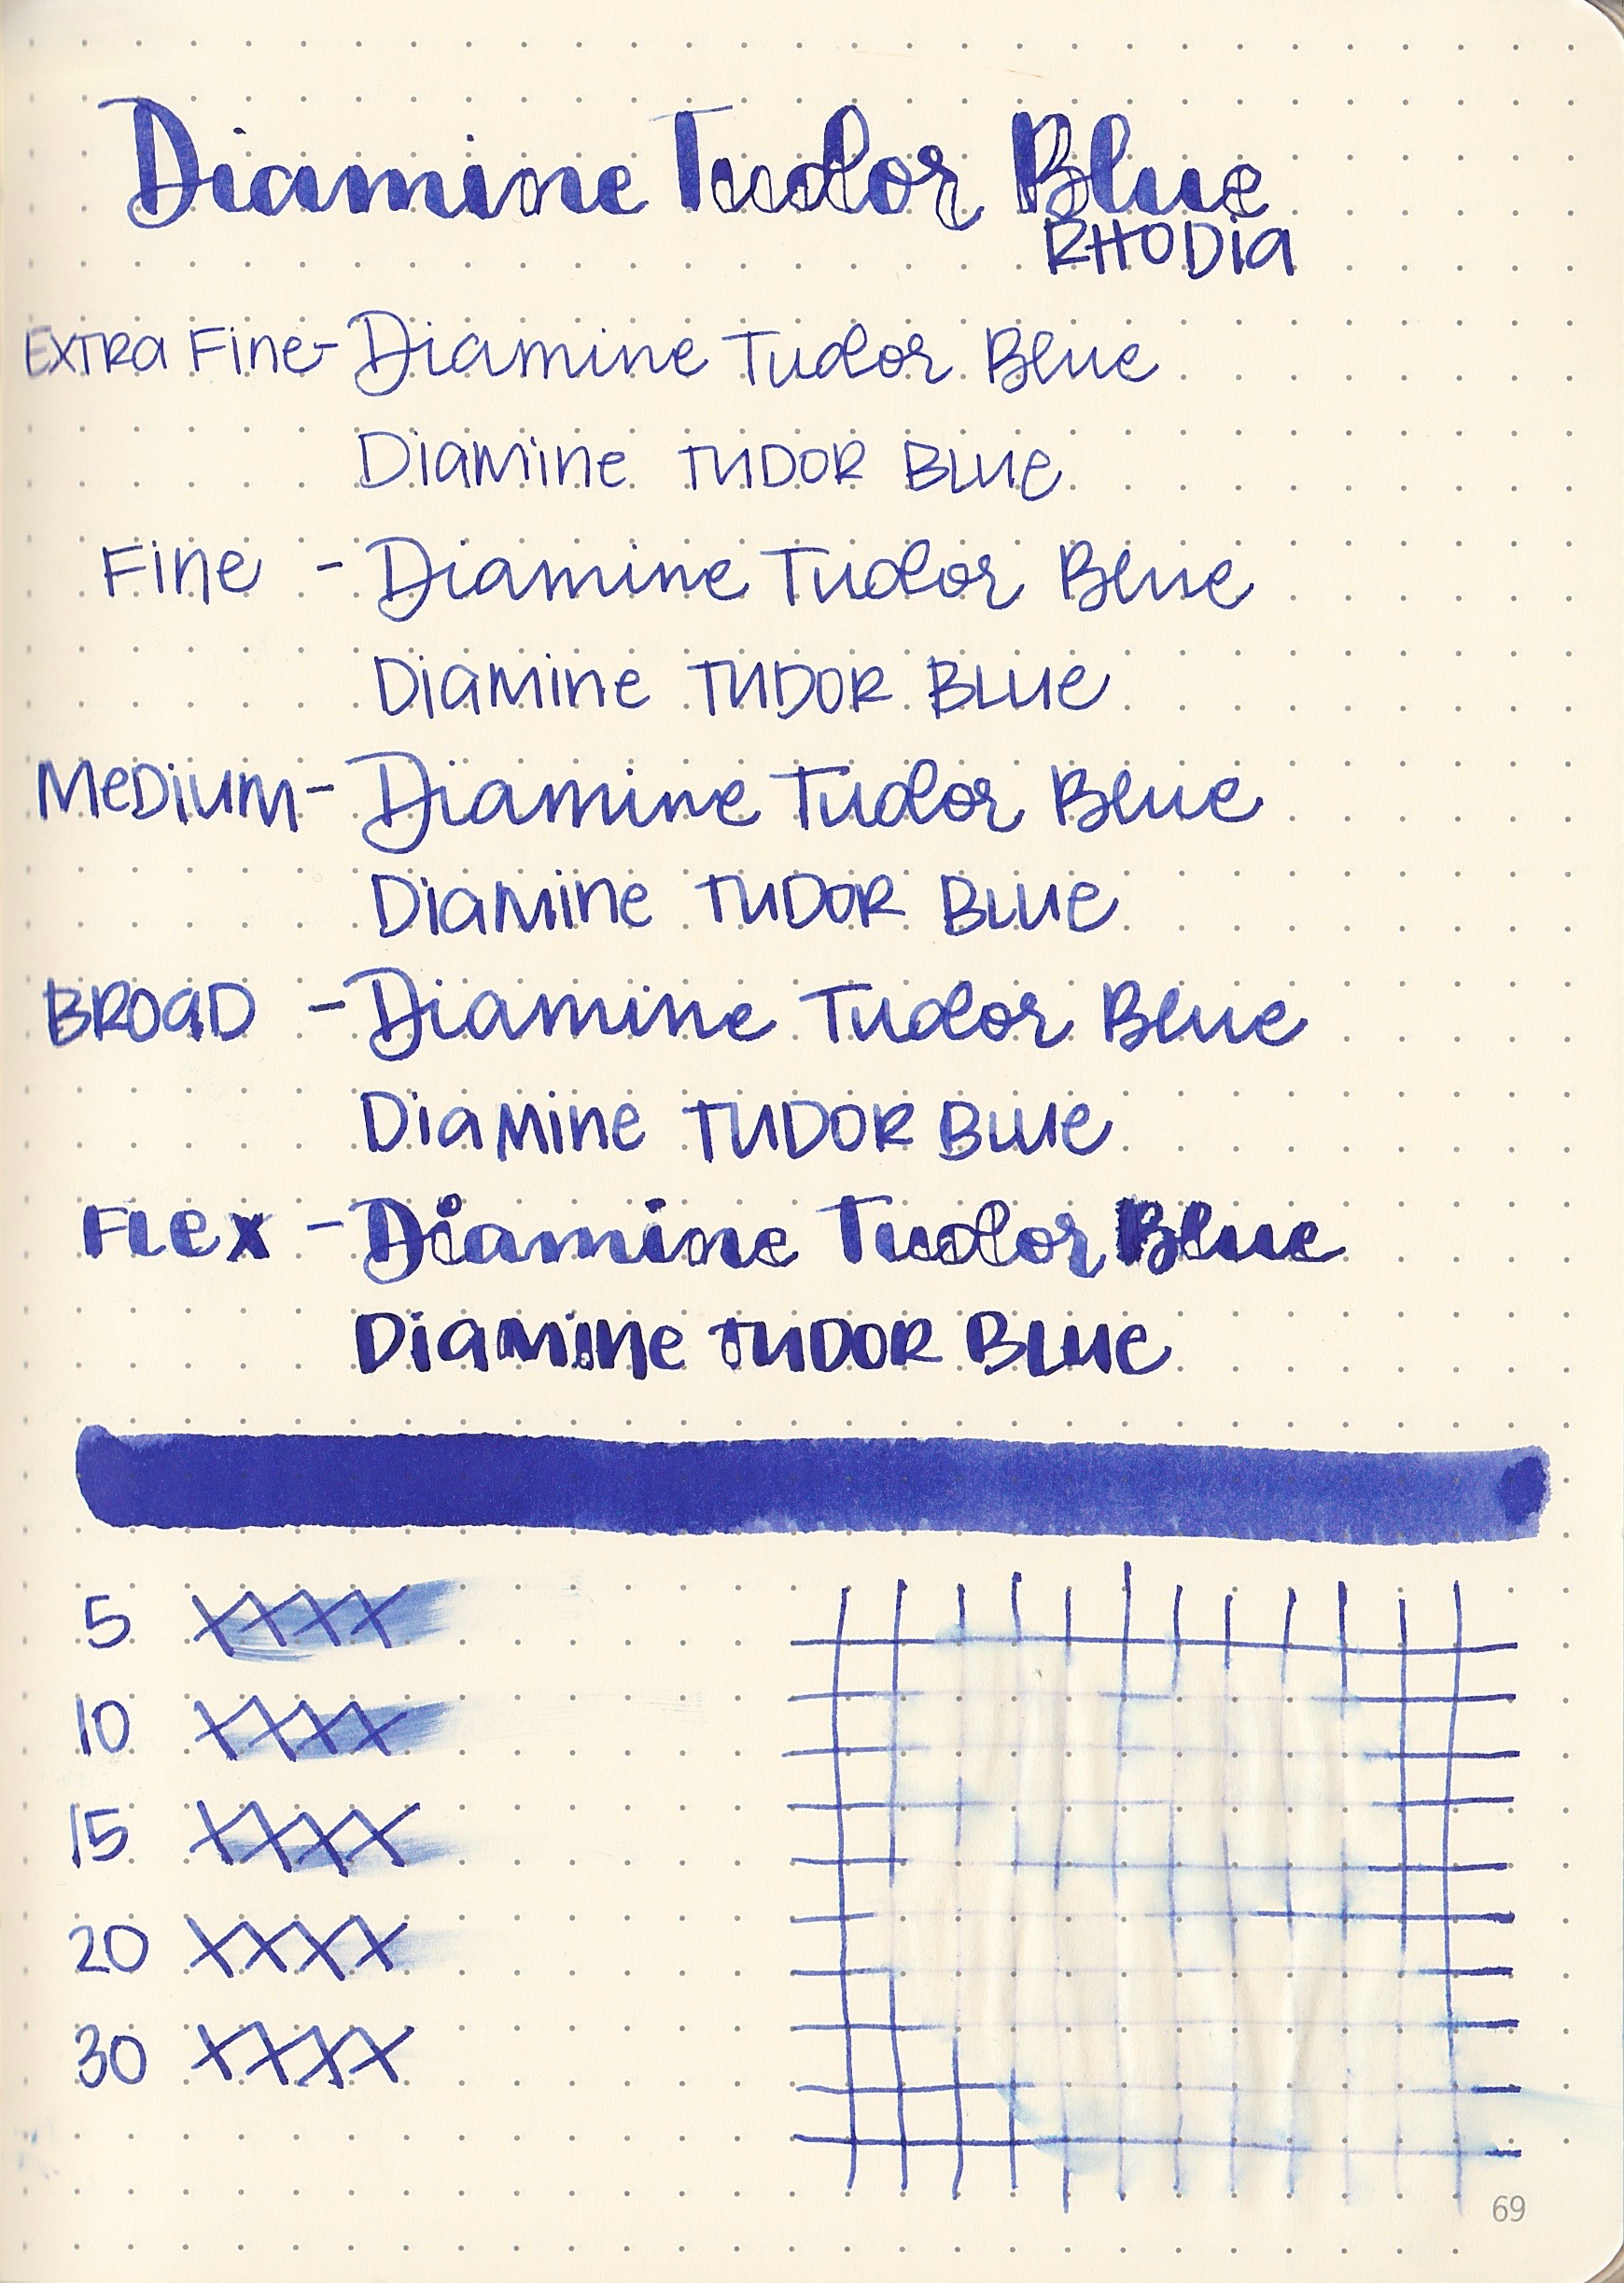 Diamine Tudor Blue
RHODia
EXTRa Fine- Diamine Tudor Blue
Diamine TUDOR BLUe
Fine - Diamine Tudor Blue
Diamine TUDOR BLUe
MeDiUM- Diamine Tudor Blue
Diamine TUDOR BLUe
BROaD - Diamine Tudor Blue
DiaMine TUDOR BLUe
FLex - Diamine Tudor Blue
Diamine TUDOR BLUe
5 XXXX
10 XXXX
15 XXXX
20 XXXX
30 XXXX
69